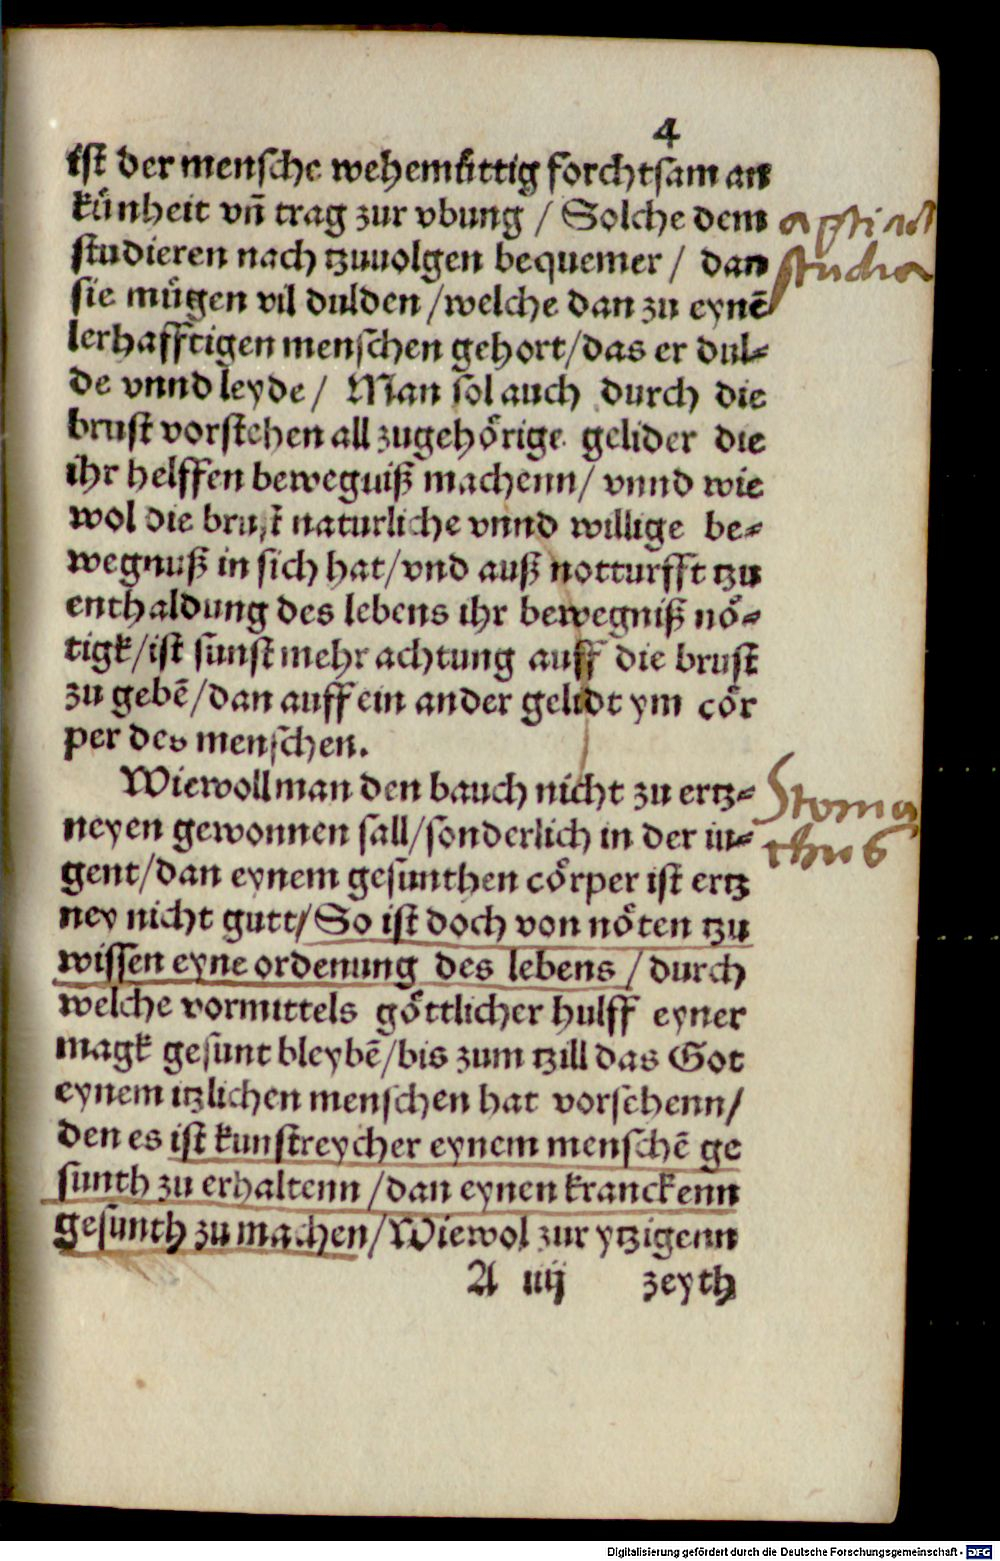 4
ist der mensche wehemüttig forchtsam an
künheit vñ trag zur vbung / Solche dem
studieren nach tzuuolgen bequemer / dan
sie mügen vil dulden /welche dan zu eynẽ
lerhafftigen menschen gehort/das er dul⸗
de vnnd leyde / Man sol auch durch die
brust vorstehen all zugehörige gelider die
ihr helffen beweguiß machenn/ vnnd wie
wol die brust naturliche vnnd willige be⸗
wegnuß in sich hat/vnd auß notturfft tzu
enthaldung des lebens ihr bewegniß nö⸗
tigk/ist sunst mehr achtung auff die brust
zu gebẽ/dan auff ein ander gelidt ym cör
per des menschen.
Wiewoll man den bauch nicht zu ertz⸗
neyen gewonnen sall/sonderlich in der iu⸗
gent/dan eynem gesunthen cörper ist ertz
ney nicht gutt/So ist doch von nöten tzu
wissen eyne ordenung des lebens / durch
welche vormittels göttlicher hulff eyner
magk gesunt bleybẽ/bis zum tzill das Got
eynem itzlichen menschen hat vorsehenn/
den es ist kunstreycher eynem menschẽ ge
sunth zu erhaltenn /dan eynen kranckenn
gesunth zu machen/Wiewol zur ytzigenn
A iiij zeyth
studia
Stoma
chus
Digitalisierung gefördert durch die Deutsche Forschungsgemeinschaft - DFG